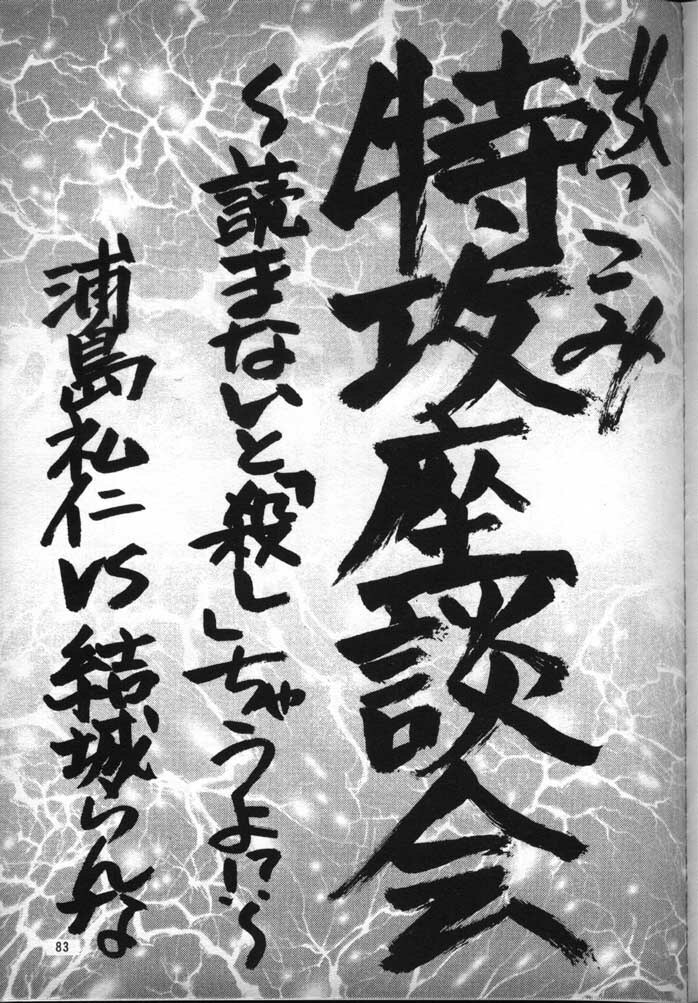 ぶっこみ
特攻座談会
～読まないと「殺し」ちゃうよ!!～
浦島礼仁VS結城らんな
83